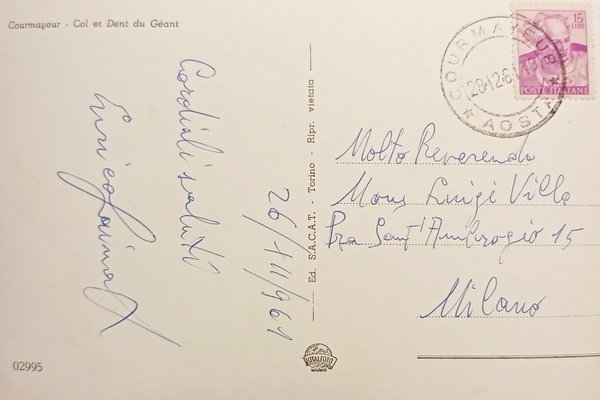 Courmayeur - Col et Dent du Géant
Cordiali saluti
26/12/961
Ed. S.A.C.A.T. - Torino - Ripr. vietata
COURMAYEUR
28.12.61
* AOSTA *
15
LIRE
POSTE ITALIANE
Molto Reverendo
Mons Luigi Villa
Pza Sant'Ambrogio 15
Milano
ROTALFOTO
MILANO
02995